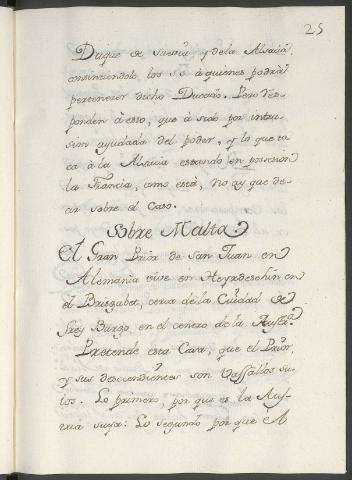 25
Duque de Suevia, y de la Alsacia,
consintiendolo los S.S. à quienes podrà
pertenecer dicho Ducado. Pero res-
ponden à esso, que à sido por intru-
sion ayudada del poder, y lo que to-
ca à la Alsacia estando en posesion
la Francia, como està, no ay que de-
cir sobre el Caso.
Sobre Malta.
El Gran Prior de San Juan en
Alemania vive en Heyrdeschin en
el Brisgabet, cerca de la Ciudad de
Frey Burgo, en el centro de la Austra.
Pretende esta Casa, que el Prior,
y sus descendientes son Vassallos su-
ios. Lo primero, por que es la Aus-
tria suya: Lo segundo, por que A